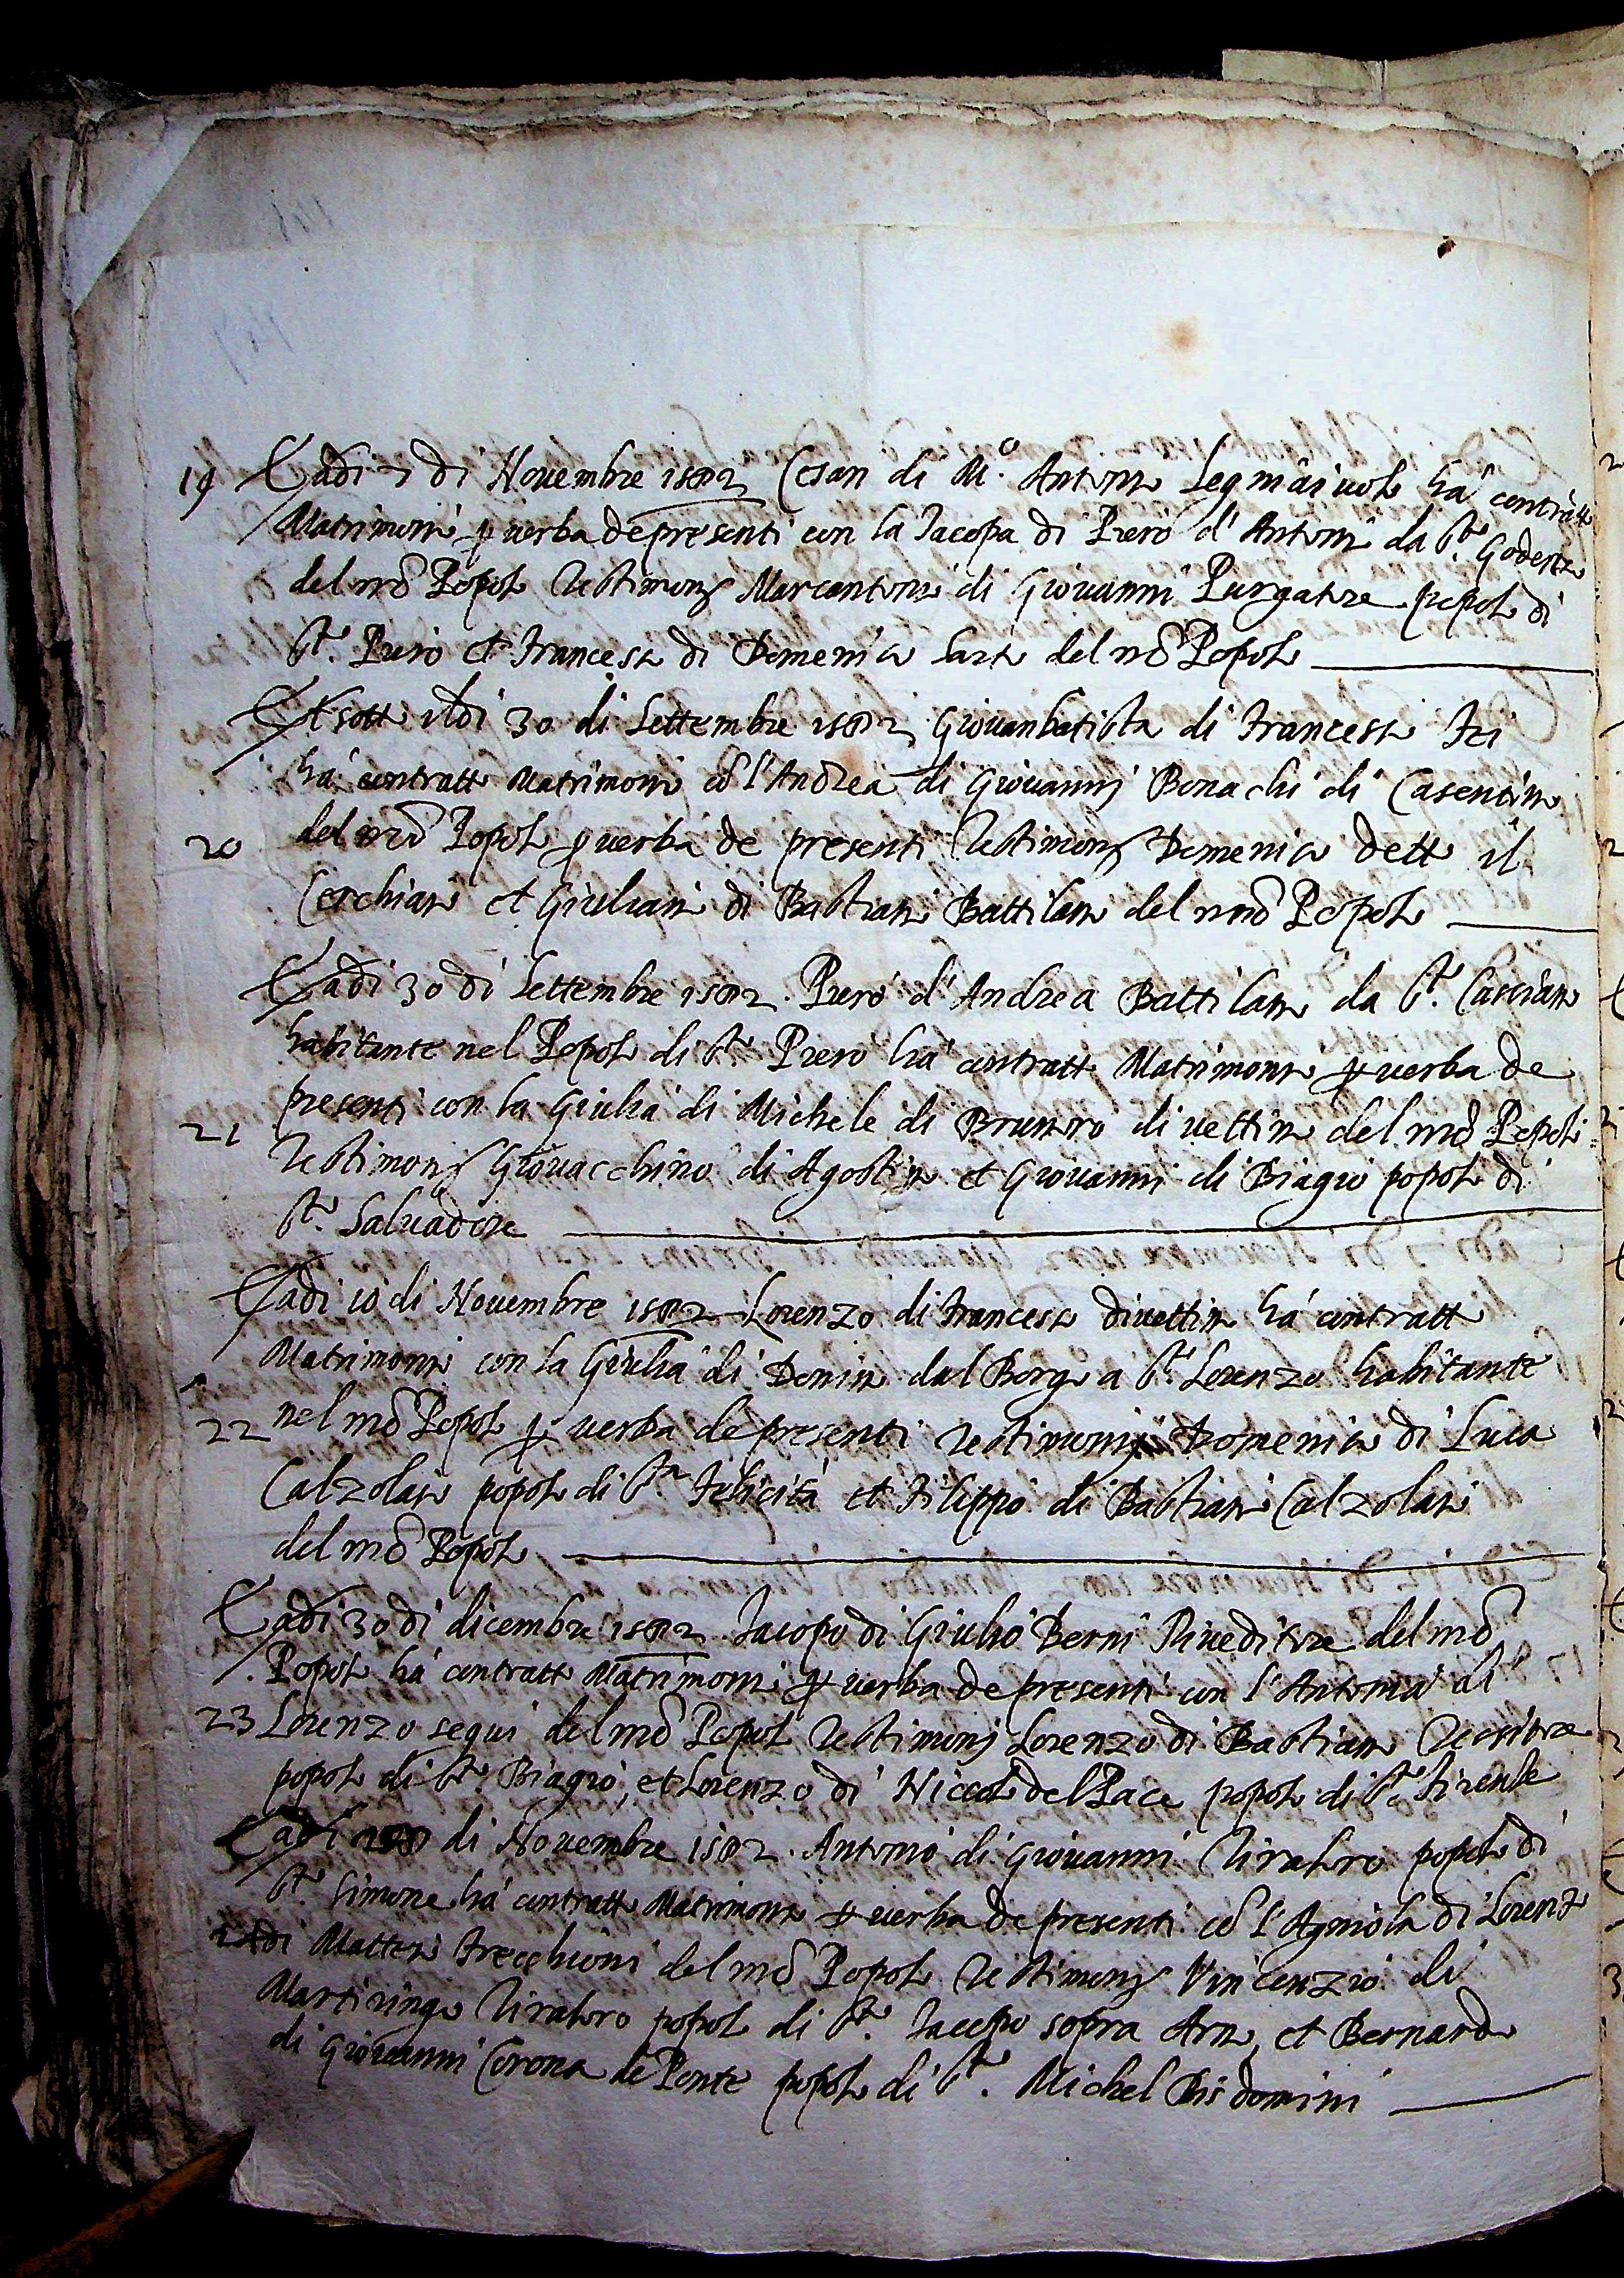 19 E adi 7 di Novembre 1582 Cesari di M.o Antonio Legniaivolo ha contratto
Matrimonio p verba de presenti con la Jacopa di Piero d'Antonio da S.to Godenzo
del nrō Popolo Testimonij Marcantonio di Giovanni Purgatore popolo di
S.to Piero et Francesco di Domenico Sarto del nrō Popolo
Et sotto il di 30 di Settembre 1582 Giovanbatista di Francesco Fei
ha contratto Matrimonio cō l'Andrea di Giovanni Bonachi di Casentino
20 del nrō Popolo p verba de presenti Testimonij Domenico detto il
Cerchiaro et Giuliano di Bastiano Battilano del nrō Popolo
E adi 30 di Settembre 1582. Piero d'Andrea Battilano da S.to Casciano
habitante nel Popolo di S.to Piero ha contratto Matrimonio p verba de
presenti con la Giulia di Michele di Brunoro divettino del nrō Popolo
21 Testimonij Giovacchino di Agostino et Giovanni di Biagio popolo di
S.to Salvadore
E adi 10 di Novembre 1582 Lorenzo di Francesco divettino ha contratto
Matrimonio con la Giulia di Donino dal Borgo a S.to Lorenzo habitante
22 nel nrō Popolo p verba de presenti Testimonij Domenico di Luca
Calzolaio popolo di S.ta Felicita et Filippo di Bastiano Calzolaio
del nrō Popolo
E adi 30 di dicembre 1582 Jacopo di Giulio Berni Riveditore del nrō
Popolo ha contratto Matrimonio p verba de presenti con l'Antonia di
23 Lorenzo segui del nrō Popolo Testimonij Lorenzo di Bastiano Tessitore
popolo di S.to Biagio, et Lorenzo di Niccolo del Pace popolo di S.to Firenze
E adi di Novembre 1582. Antonio di Giovanni Tiraloro popolo di
S.to Simone ha contratto Matrimonio p verba de presenti cō l'Agniola di Lorenzo
24 di Matteo Frecchioni del nrō Popolo Testimonij Vincenzio di
Martiningo Tiraloro popolo di S.to Jacopo sopra Arno, et Bernardo
di Giovanni Corona de Ponte popolo di S.to Michel Bisdomini